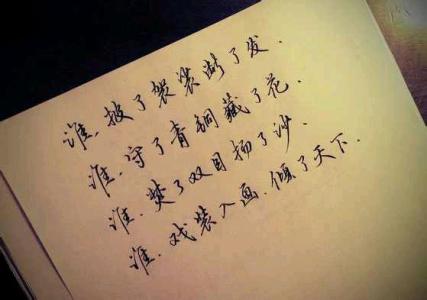 谁.披了袈裟剃了发.
谁.守了青铜藏了花.
谁.焚了双目扬了沙.
谁.戏装入画.倾了天下.